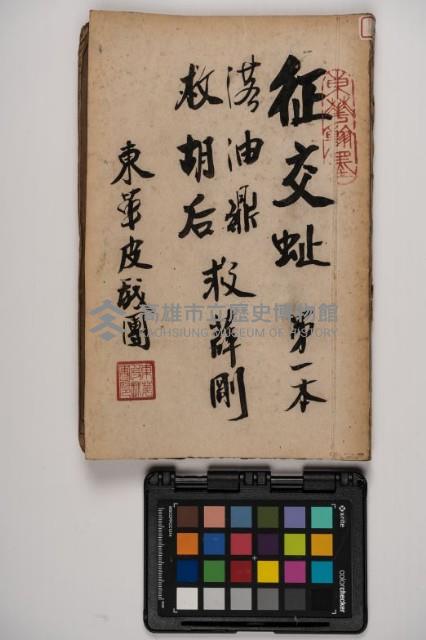 征交趾 第一本
落油鼎 救薛剛
救胡后
東華皮戲團
東華翰墨
高雄市立歷史博物館
KAOHSIUNG MUSEUM OF HISTORY
x-rite
colorchecker